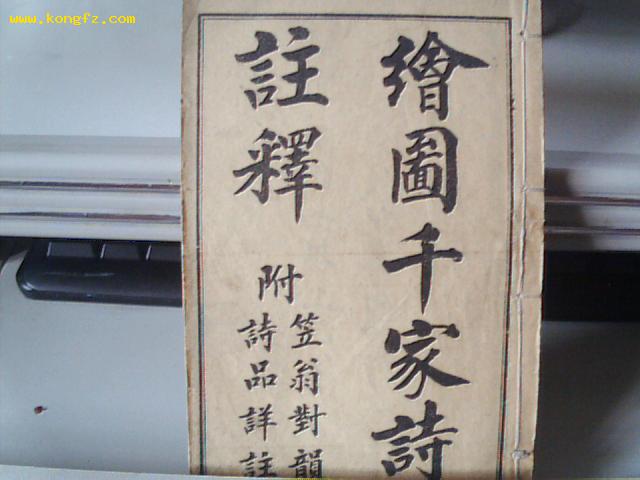 www.kongfz.com
繪圖千家詩
註釋
附
笠翁對韻
詩品詳註